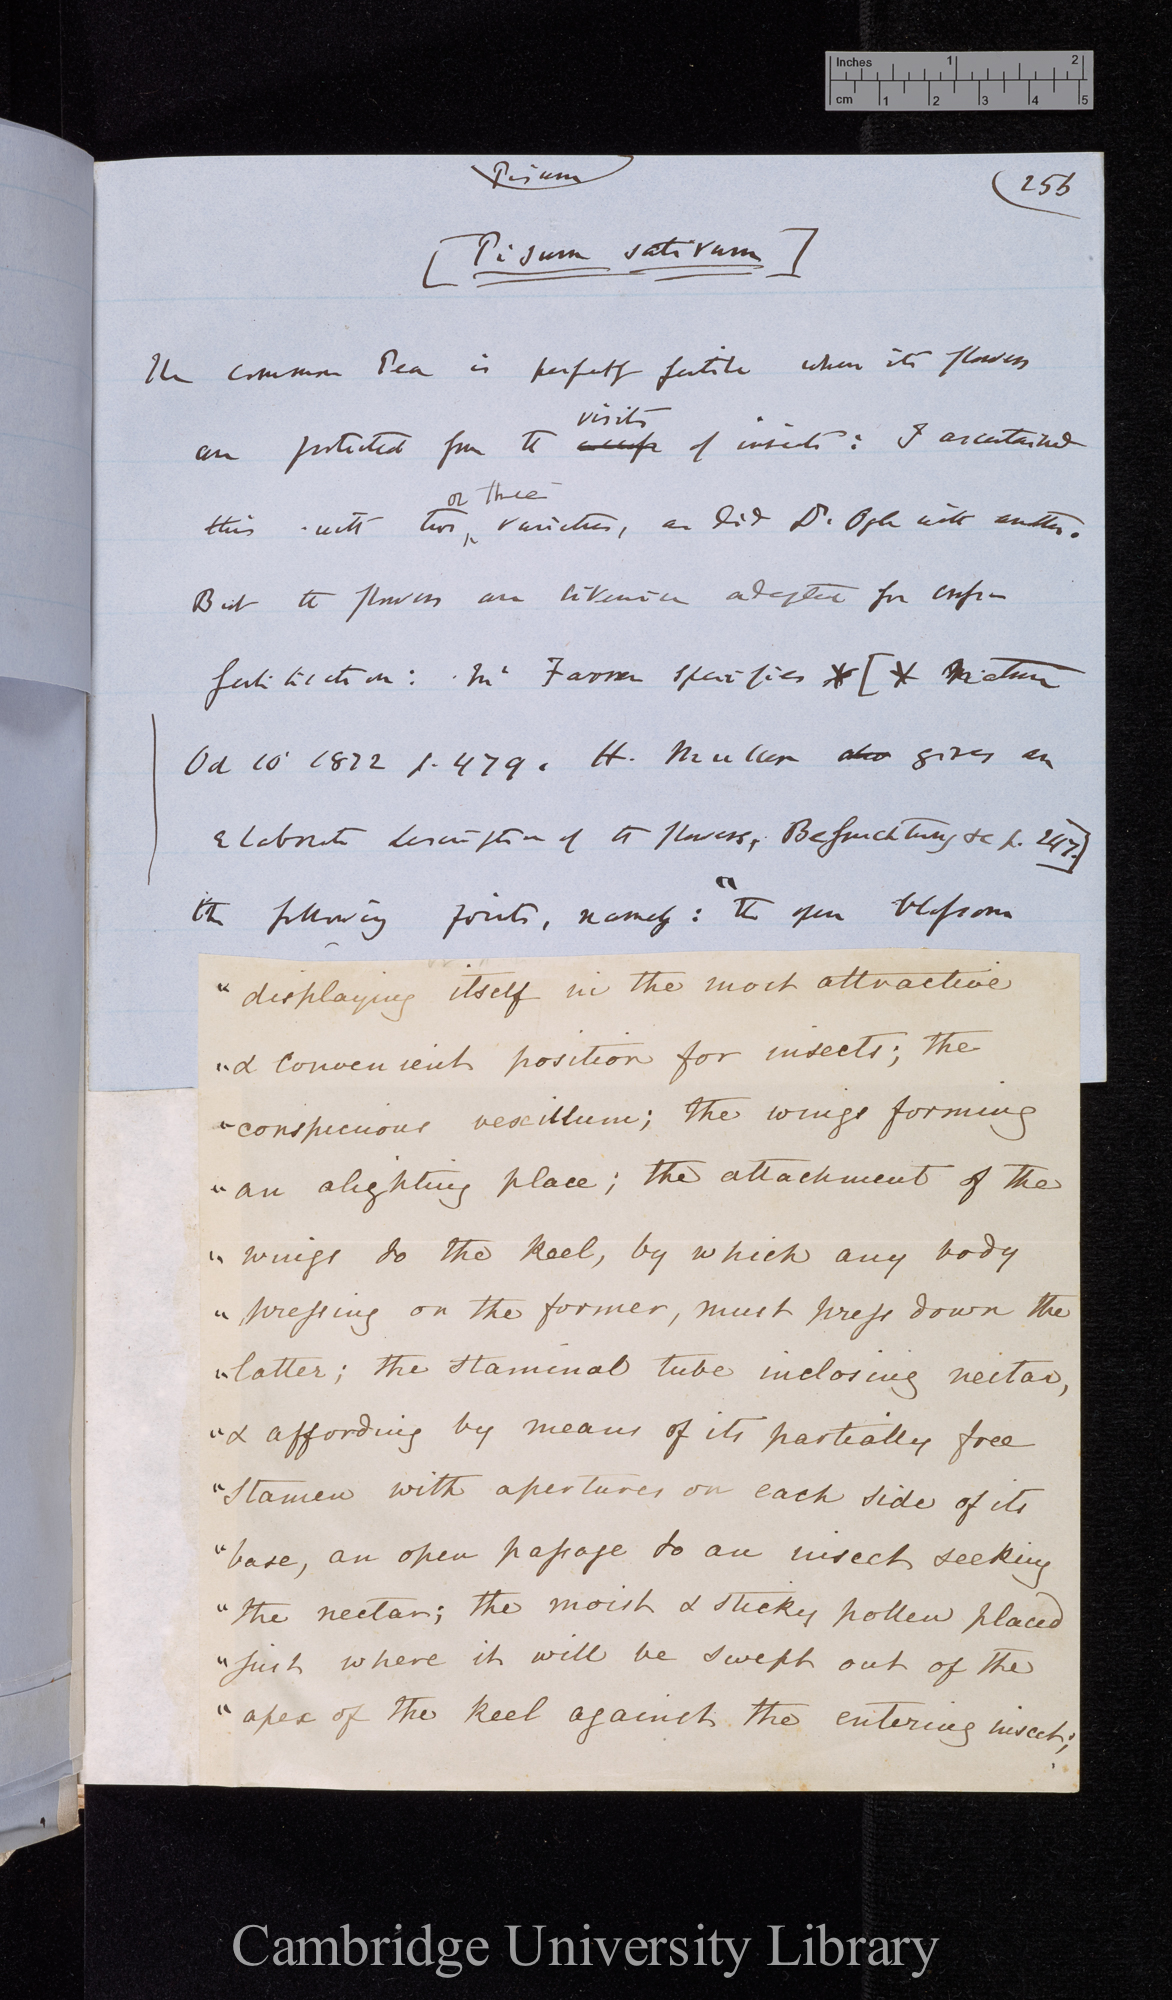 Inches 1 2
cm 1 2 3 4 5
Pisum
256
[Pisum sativum]
The common Pea is perfectly fertile when its flowers
visits
are protected from the of insects: I ascertained
or three
this with two varieties, as did Dr. Ogle with another.
But the flowers are likewise adapted for cross-
fertilisation: Mr Farrer specifies *[* Nature
Oct 10 1872 p. 479. H. Muller also gives an
elaborate description of the flowers, Befruchtung &c p. 247.]
the following points, namely: "the open blossom
"displaying itself in the most attractive
"& convenient position for insects; the
"conspicuous vexillum; the wings forming
"an alighting place; the attachment of the
"wings to the keel, by which any body
"pressing on the former, must press down the
"latter; the staminal tube inclosing nectar,
"& affording by means of its partially free
"stamen with apertures on each side of its
"base, an open passage to an insect seeking
"the nectar; the moist & sticky pollen placed
"just where it will be swept out of the
"apex of the keel against the entering insect;
Cambridge University Library